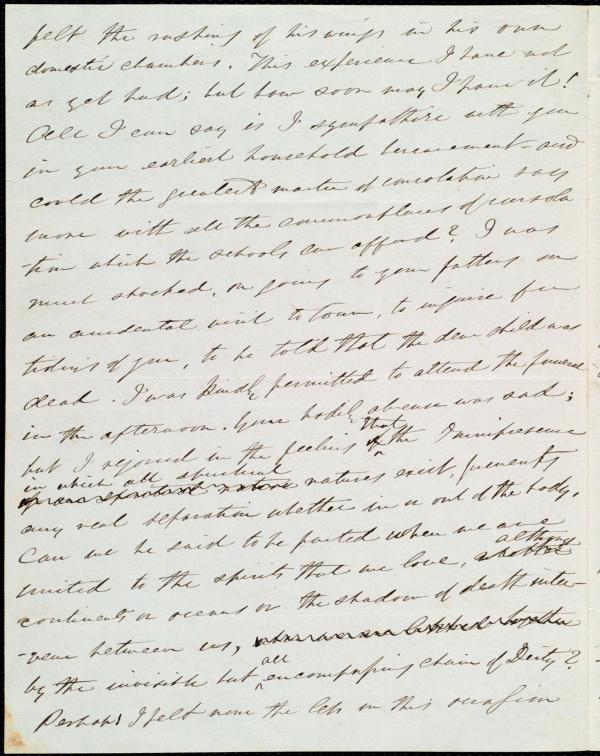 felt the rushing of his wings in his own
domestic chambers. This experience I have not
as yet had; but how soon may I have it!
All I can say is I sympathize with you
in your earliest household bereavement - and
could the greatest master of consolation say
more with all the commonplaces of consola
-tion which the schools can afford? I was
much shocked, on going to your fathers on
an accidental visit to town, to inquire for
tidings of you, to be told that the dear child was
dead. I was kindly permitted to attend the funeral
in the afternoon. Your bodily absence was sad;
but I rejoiced in the feeling that the Omnipresence
in which all spiritual natures exist, prevents
any real separation whether in or out of the body.
Can we be said to be parted when we are
united to the spirits that we love, although
continents or oceans or the shadow of death inter-
-vene between us,
by the invisible but all encompassing chain of Deity?
Perhaps I felt none the less on this occasion